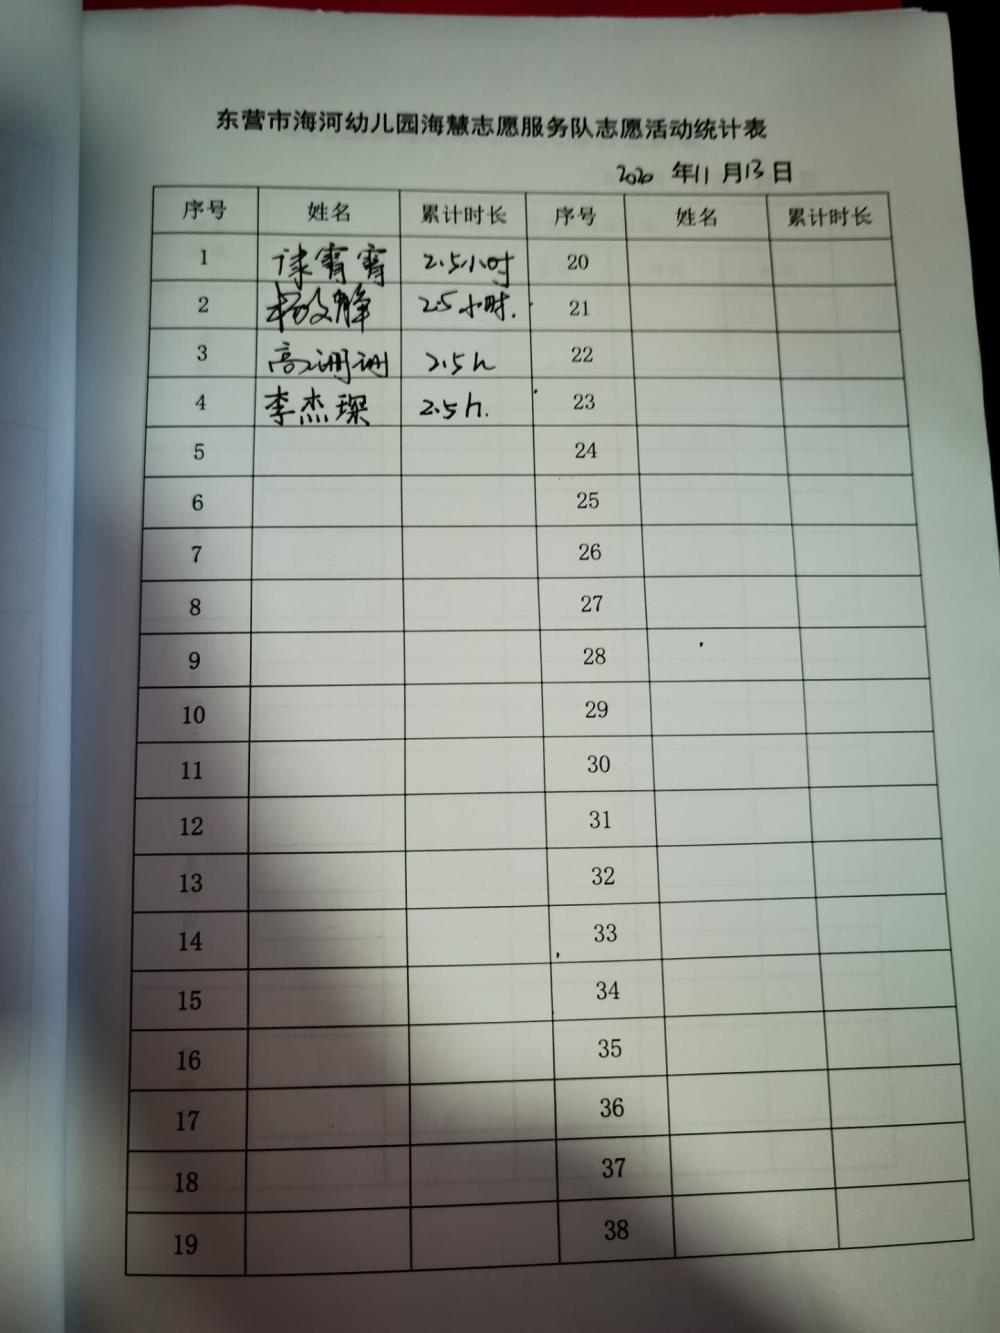 东营市海河幼儿园海慧志愿服务队志愿活动统计表
2020 年11 月13 日
序号 姓名 累计时长 序号 姓名 累计时长
1 霄霄 2.5小时 20
2 杨文静 2.5小时. 21
3 高 2.5h 22
4 李杰琛 2.5h. 23
5 24
6 25
7 26
8 27
9 28
10 29
11 30
12 31
13 32
14 33
15 34
16 35
17 36
18 37
19 38